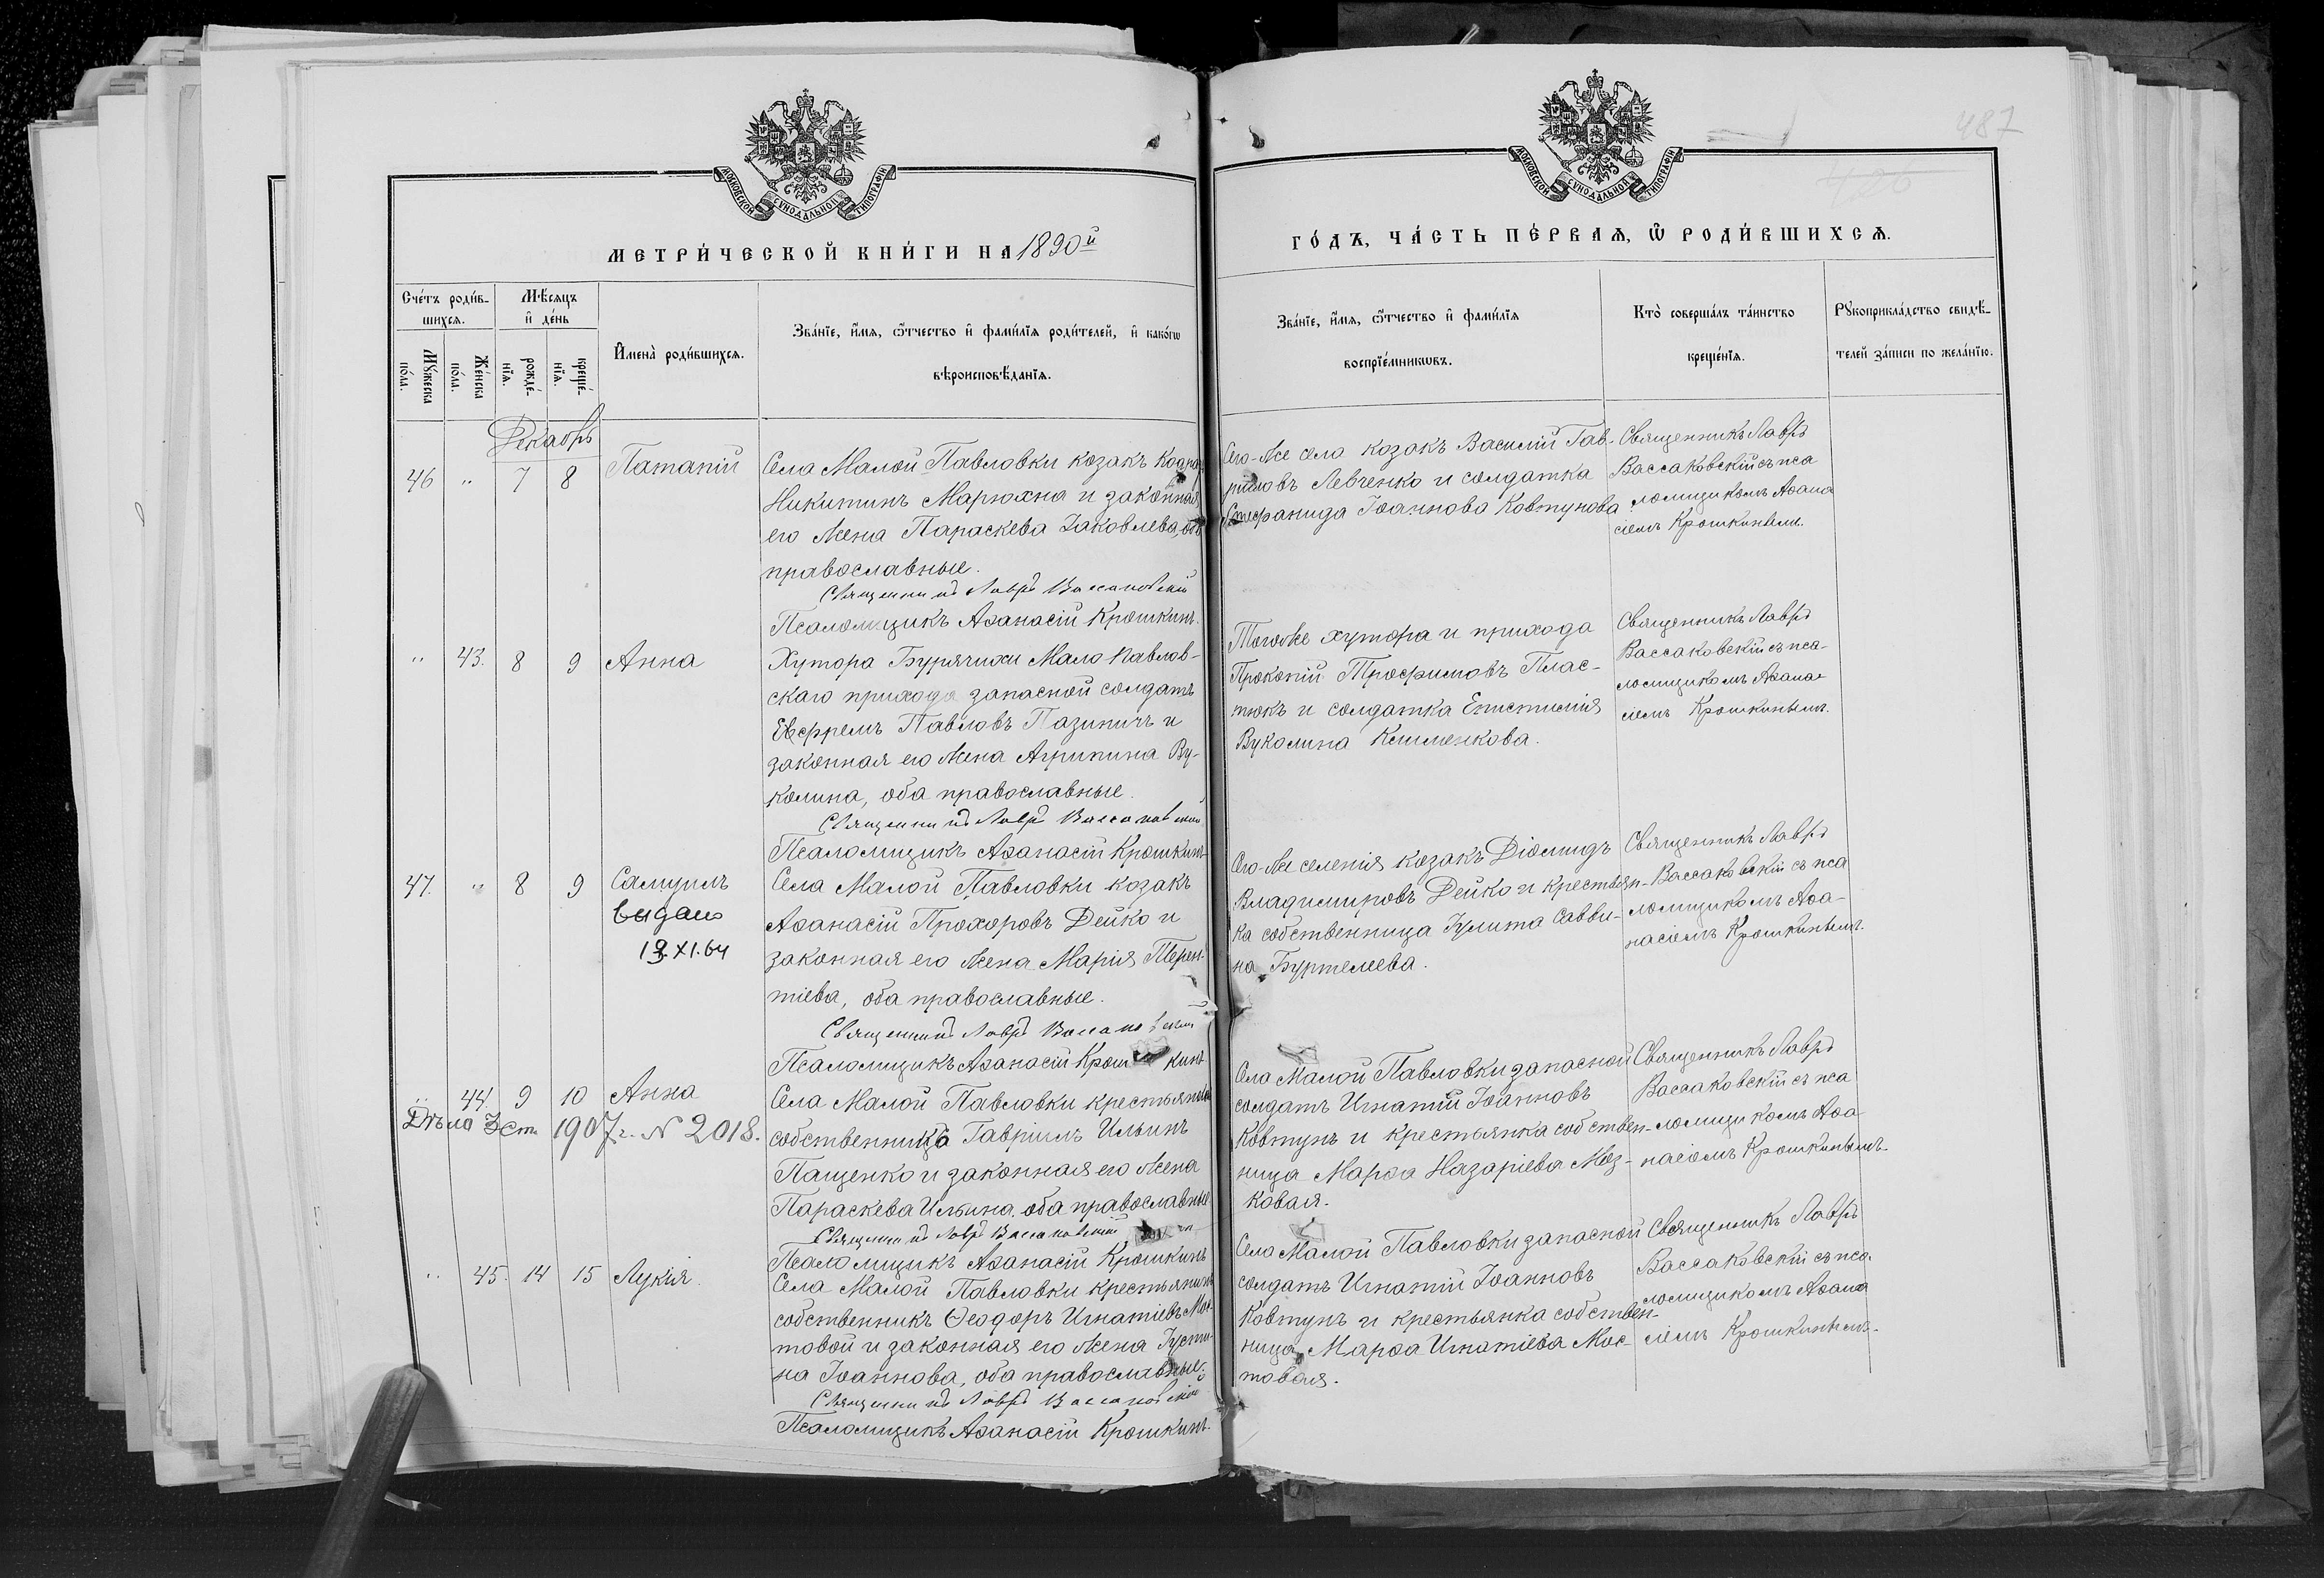 МОСКОВСКОЙ СѴНОДАЛЬНОЙ ТИПОГРАФІИ
МЕТРИ́ЧЕСКОЙ КНИ́ГИ НА 1890й
Сче́тъ роди́в-
шихся.
Мѣ́сяцъ
и҆ де́нь
Мꙋ́жеска
по́ла.
Же́нска
по́ла.
рожде́-
нїя.
креще́-
нїя.
И҆мена̀ роди́вшихся.
Зва́нїе, и҆́мя, ѻ҆́тчество и҆ фами́лїя роди́телей, и҆ како́гѡ
вѣроисповѣ́данїя.
Декабрь
46 " 7 8 Патапій
Села Малой Павловки козакъ
Никитинъ Марюхна и законная
его жена Параскева Іаковлева, оба
православные.
Священникъ Лавръ Вассаковскій
Псаломщикъ Аѳанасій Крошкинъ.
" 43. 8 9 Анна
Хутора Бурячихи Мало Павлов-
скаго прихода запасной солдатъ
Евфремъ Павловъ Пазиничъ и
законная его жена Агрипина Ву-
колина, оба православные.
Священникъ Лавръ Вассаковскій
Псаломщикъ Аѳанасій Крошкинъ
47. " 8 9 Самуилъ
выдано
19.XI.64
Села Малой Павловки козакъ
Аѳанасій Прохоровъ Дейко и
законная его жена Марія Терен-
тіева, оба православные.
Священникъ Лавръ Вассаковскій
Псаломщикъ Аѳанасій Крошкинъ
" 44. 9 10 Анна
Дѣло 3 ст. 1907 г. N 2018.
Села Малой Павловки крестьянинъ
собственникъ Гавріилъ Ильинъ
Пащенко и законная его жена
Параскева Ильина, оба православные
Священникъ Лавръ Вассаковскій
Псаломщикъ Аѳанасій Крошкинъ
" 45. 14 15 Лукія.
Села Малой Павловки крестьянинъ
собственникъ Ѳеодоръ Игнатіевъ Мос-
товой и законная его жена Іусти-
на Іоаннова, оба православные.
Священникъ Лавръ Вассаковскій
Псаломщикъ Аѳанасій Крошкинъ.
487
МОСКОВСКОЙ СѴНОДАЛЬНОЙ ТИПОГРАФІИ
ГО́ДЪ, ЧА́СТЬ ПЕ́РВАЯ, Ѽ РОДИ́ВШИХСЯ.
Зва́нїе, и҆́мя, ѻ҆́тчество и҆ фами́лїя
воспрїе́мникѡвъ.
Кто̀ соверша́лъ та́инство
креще́нїя.
Рꙋкоприкла́дство свидѣ́-
телей за́писи по жела́нїю.
Его-же села козакъ Василій Гав-
рииловъ Левченко и солдатка
Стефанида Іоаннова Ковтунова
Священникъ Лавръ
Вассаковскій съ пса
ломщикомъ Аѳана
сіемъ Крошкинымъ.
Тогоже хутора и прихода
Прокопій Трофимовъ Плас-
тюкъ и солдатка Епистимія
Вуколина Клименкова.
Священникъ Лавръ
Вассаковскій съ пса-
ломщикомъ Аѳана-
сіемъ Крошкинымъ.
Его-же селенія козакъ Діомидъ
Владимировъ Дейко и крестьян-
ка собственница Іулита Савви-
на Буртелеева.
Священникъ Лавръ
Вассаковскій съ пса
ломщикомъ Аѳа-
насіемъ Крошкинымъ.
Села Малой Павловки запасной
солдатъ Игнатій Іоанновъ
Ковтунъ и крестьянка собствен-
ница Марѳа Назаріева
ковая.
Священникъ Лавръ
Вассаковскій съ пса
ломщикомъ Аѳа-
насіемъ Крошкинымъ.
Села Малой Павловки запасной
солдатъ Игнатій Іоанновъ
Ковтунъ и крестьянка собствен-
ница Марѳа Игнатіева Мос-
товая.
Священникъ Лавръ
Вассаковскій съ пса-
ломщикомъ Аѳана
сіемъ Крошкинымъ.